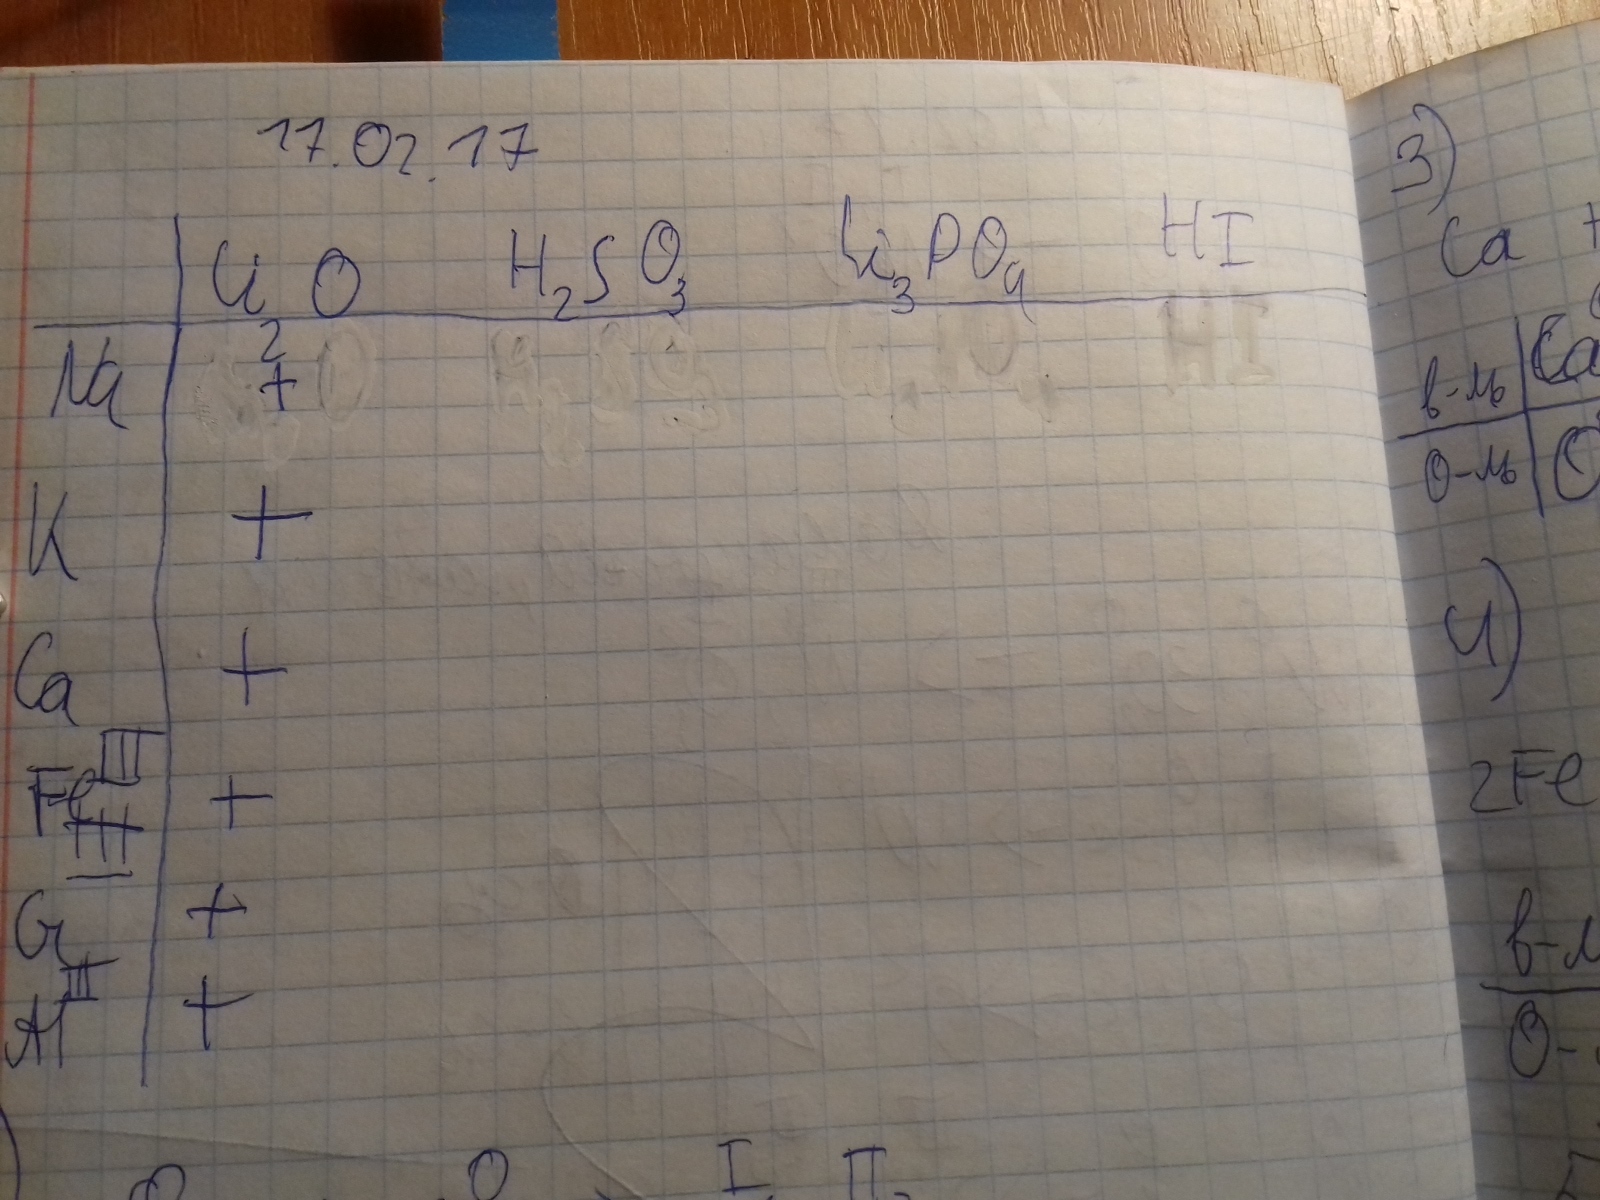 17.02.17
Li2O H2SO3 Li3PO4 HI
Na +
K +
Ca +
Fe III +
Cr III +
Al +
O O I II
3)
Ca +
в-ль Ca
о-ль O
4)
2Fe